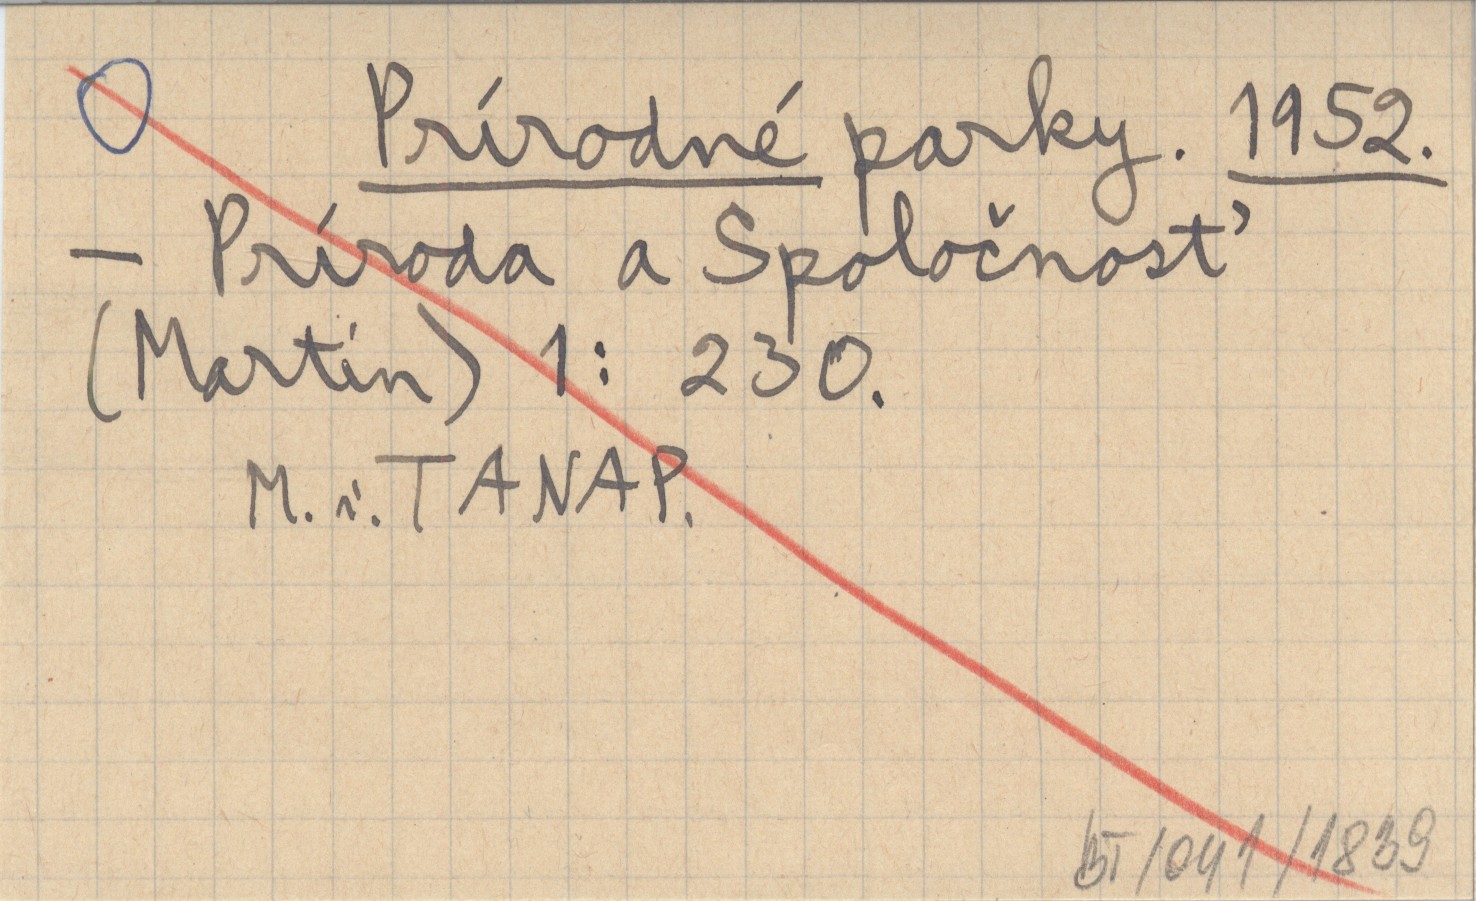 Prírodné parky. 1952.
— Príroda a Spoločnosť
(Martin) 1: 230.
M. i. TANAP.
BT/041/1839